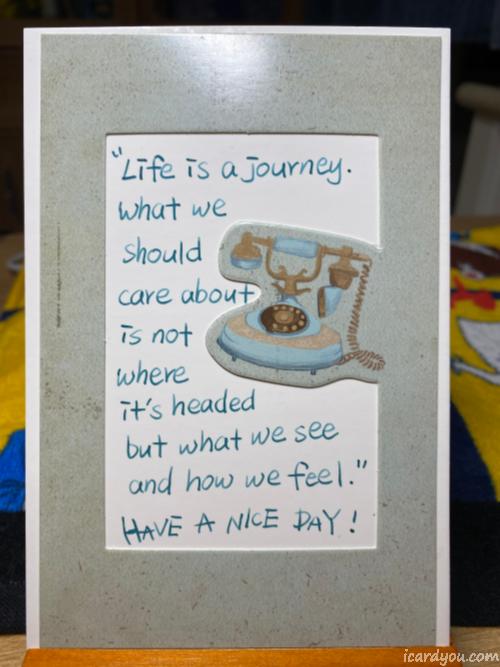 "Life is a journey.
what we
should
care about
is not
where
it's headed
but what we see
and how we feel."
HAVE A NICE DAY!
icardyou.com